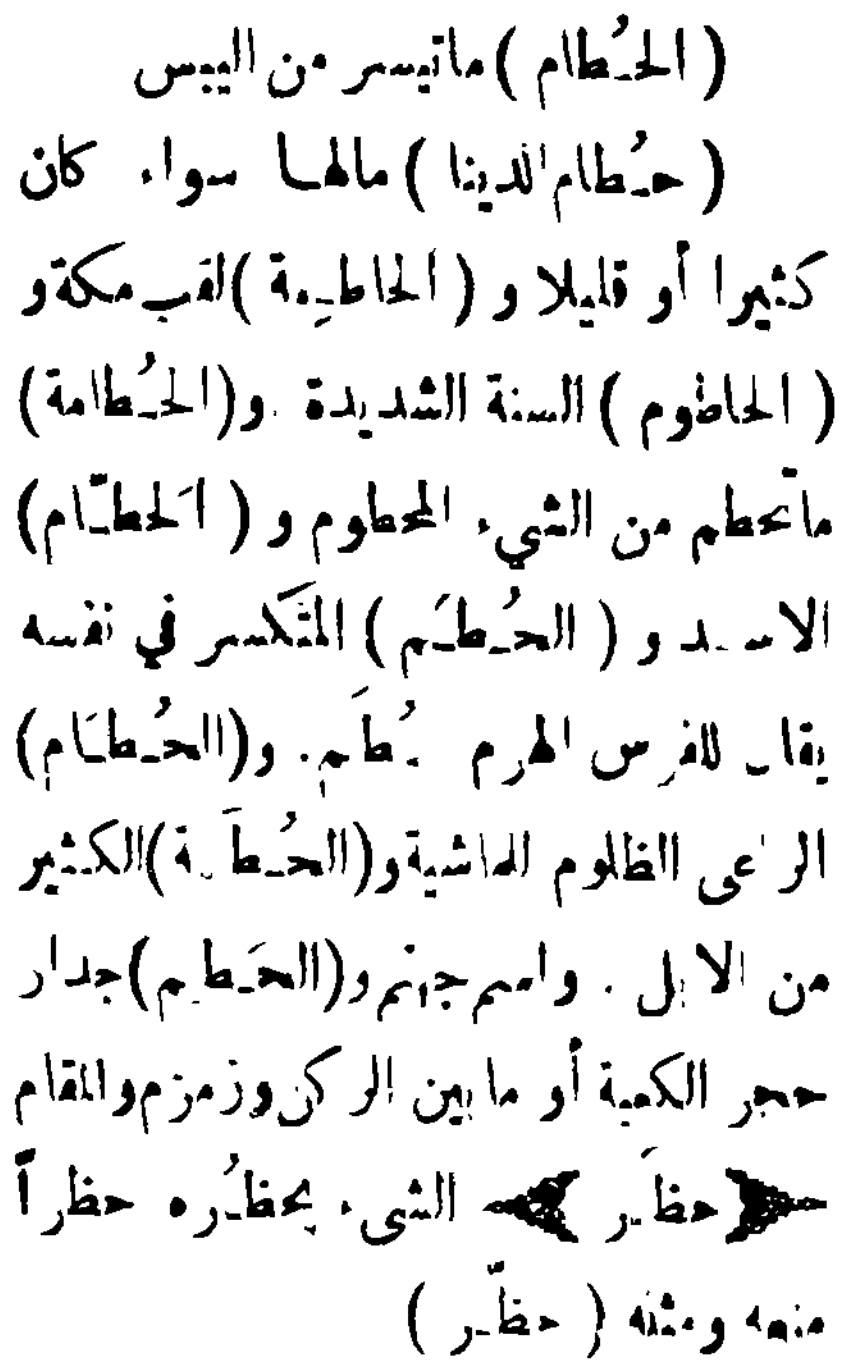 ( الحُطام ) ماتيسر من اليبس
( حُطام الدينا ) مالها سواء كان
كثيرا أو قليلا و ( الحاطِمة ) لقب مكة و
( الحاطوم ) السنة الشديدة . و(الحُطامة)
ماتحطم من الشيء المحطوم و ( الَحطَّام)
الاسد و ( الحُطَم ) المتَكسر في نفسه
يقال للفرس الهرم حُطَم . و(الحُطَام)
الراعى الظلوم للماشية و(الحُطَمة)الكثير
من الابل . واسم جهنم و(الحَطيم)جدار
حجر الكعبة أو مابين الركن وزمزم والمقام
حظَر الشىء يحظُره حظراً
منعه ومثله ( حظَّر )